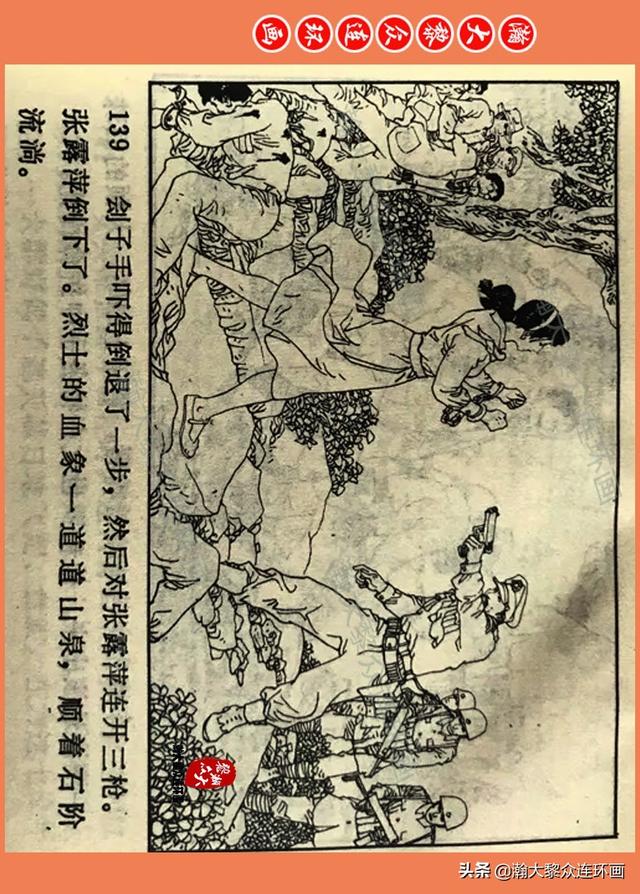 瀚大黎众连环画
139 刽子手吓得倒退了一步，然后对张露萍连开三枪。
张露萍倒下了。烈士的血象一道道山泉，顺着石阶
流淌。
头条 @瀚大黎众连环画